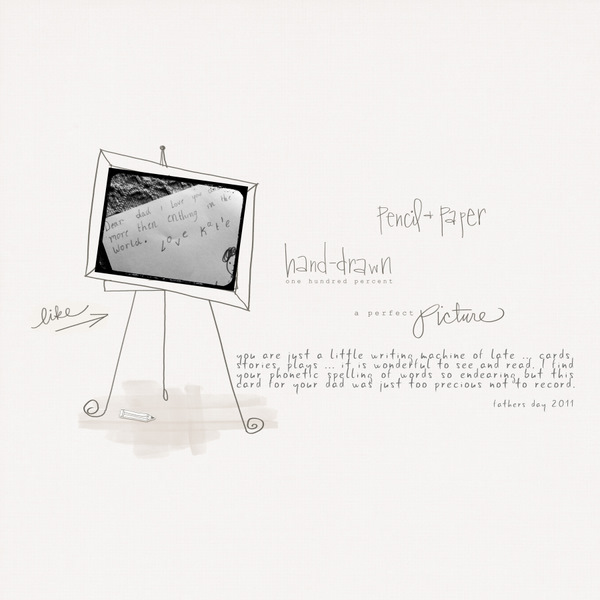 Dear dad I love you
more then enthing in the
World. Love Kat'e
Pencil + Paper
hand-drawn
one hundred percent
like
a perfect Picture
you are just a little writing machine of late ... cards,
stories, plays ... it is wonderful to see and read. I find
your phonetic spelling of words so endearing but this
card for your dad was just too precious not to record.
fathers day 2011